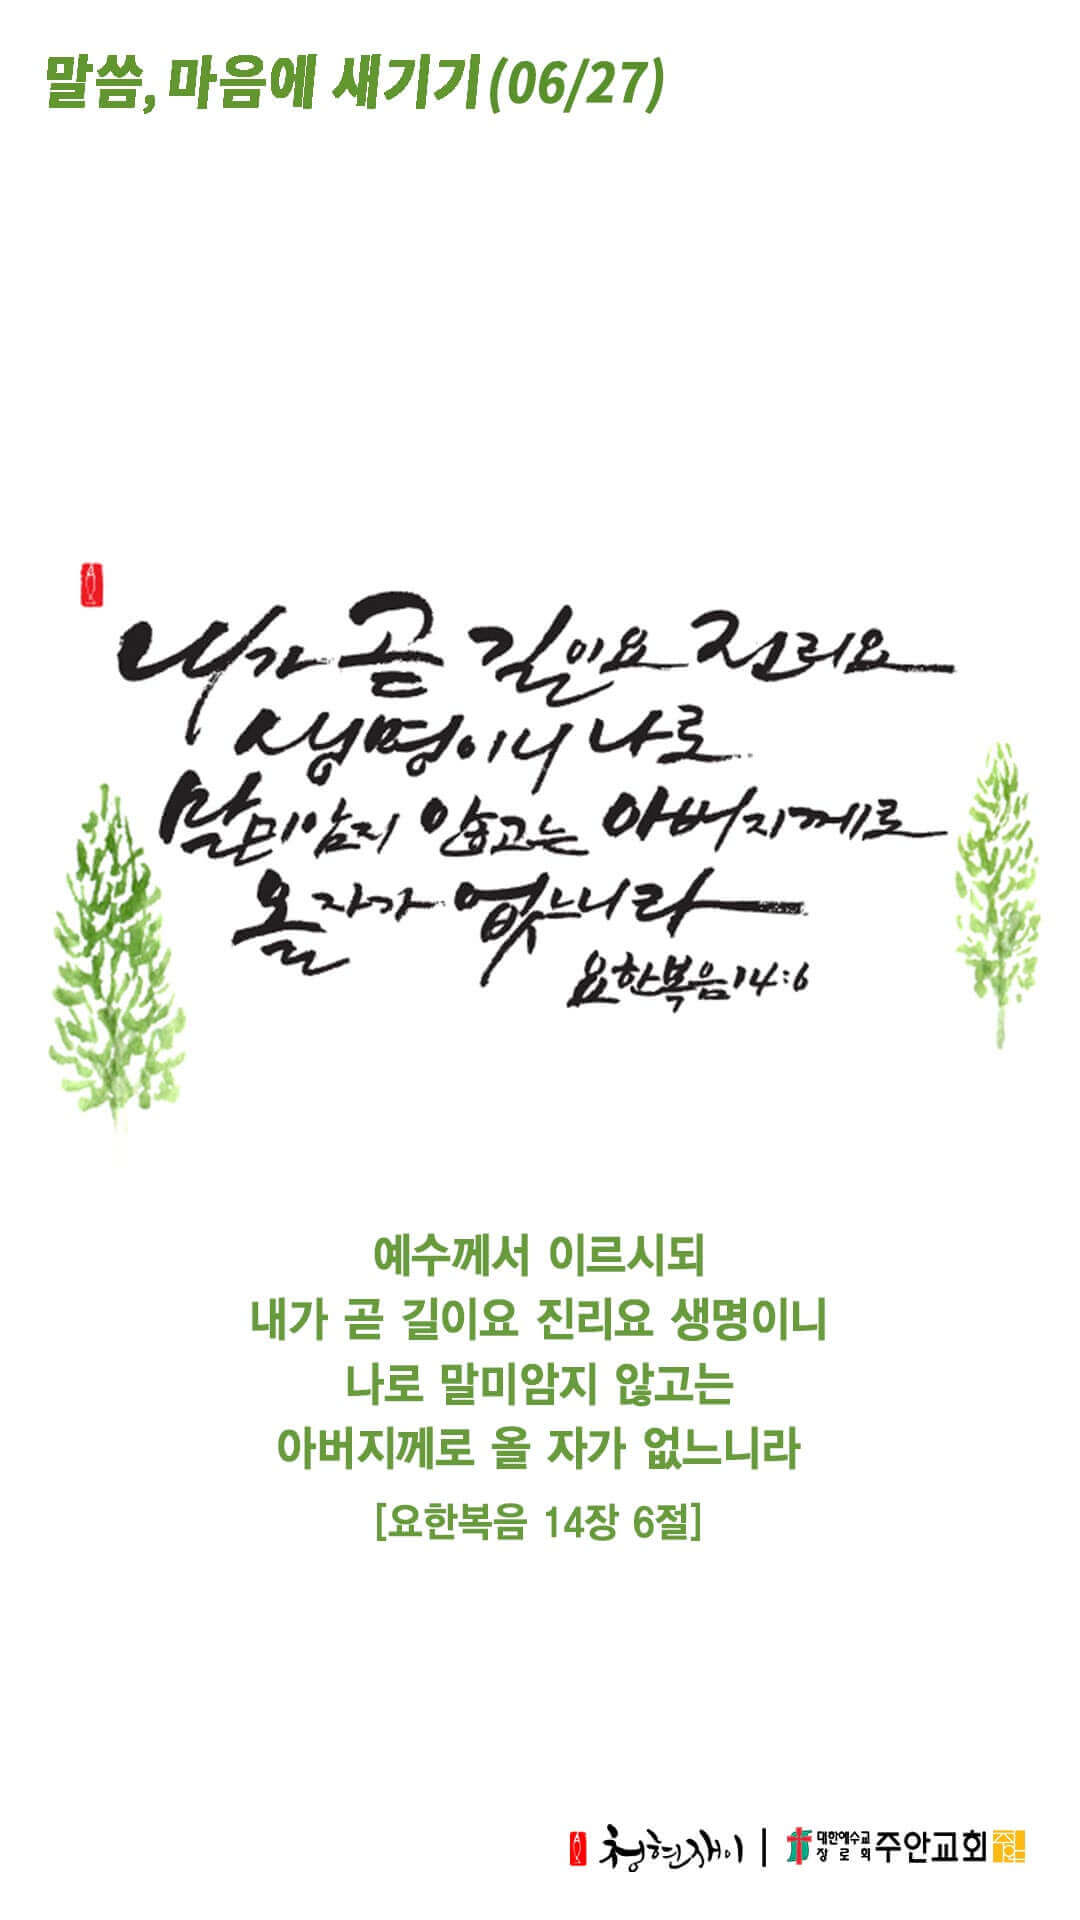 말씀, 마음에 새기기(06/27)
내가 곧 길이요 진리요
생명이니 나로
말미암지 않고는 아버지께로
올 자가 없느니라
요한복음 14:6
예수께서 이르시되
내가 곧 길이요 진리요 생명이니
나로 말미암지 않고는
아버지께로 올 자가 없느니라
[요한복음 14장 6절]
청현재이 | 대한예수교 장로회 주안교회